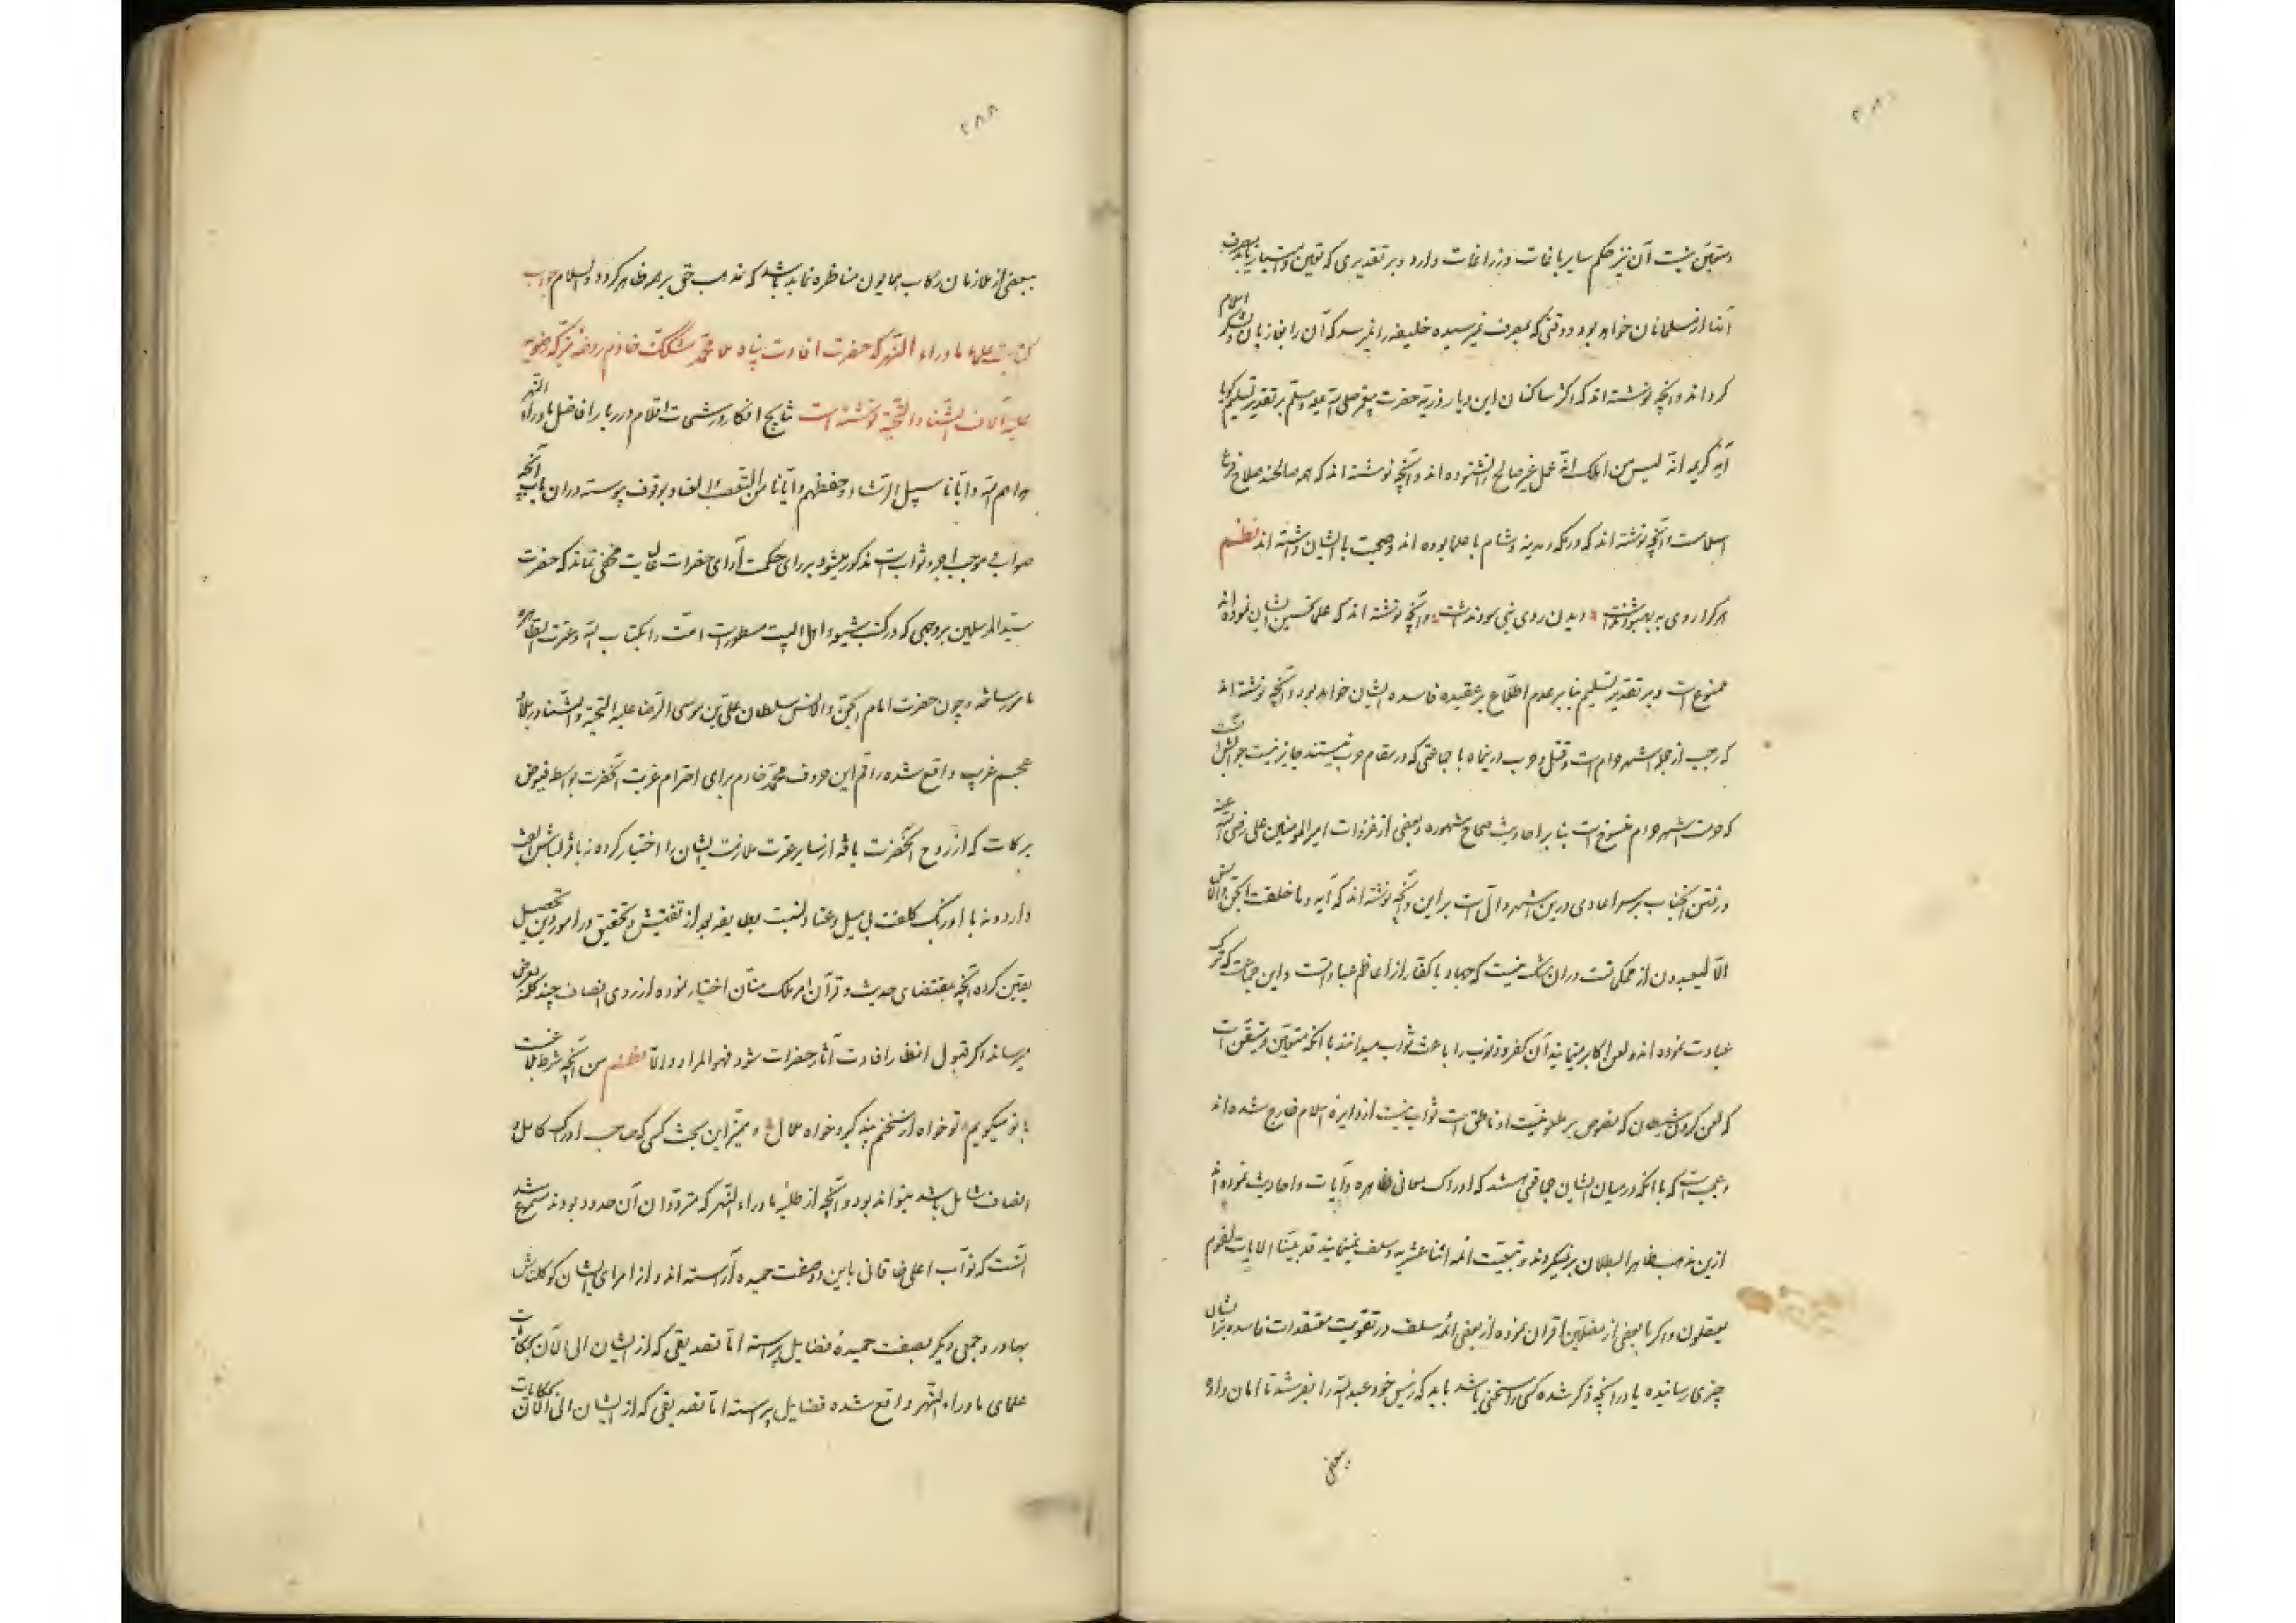 متیقن نیست آن نیز حکم سایر باغات و زراعات دارد و بر تقدیری که تعین و امتیاز یابد بصرف
آنها از مسلمانان خواهد بود و وقتی که بصرف نرسیده خلیفه را نمیرسد که آن را بغازیان لشکر اسلام
کرداند و آنچه نوشته اند که اکثر ساکنان این دیار ذریه حضرت پیغمبر صلی الله علیه و سلم بر تقدیر تسلیم کویا
آیه کریمه انه لیس من اهلک انه عمل غیر صالح را نشنوده اند و آنچه نوشته اند که همه صالحند صلاح فرع
اسلامست و آنچه نوشته اند که در مکه و مدینه و شام با علما بوده اند و صحبت با ایشان داشته اند نظم
هر کرا روی به بهبود نداشت دیدن روی نبی سود نداشت و آنچه نوشته اند که علما تحسین ایشان نموده اند
ممنوع است و بر تقدیر تسلیم بنا بر عدم اطلاع بر عقیده فاسده ایشان خواهد بود و آنچه نوشته اند
که رجب از جمله اشهر حرام است و قتل و حرب در ینماه با جماعتی که در مقام حرب نیستند جایز نیست جوابش آنست
که حرمت اشهر حرام منسوخ است بنا بر احادیث صحاح مشهوره و بعضی از غزوات امیر المومنین علی رضی الله عنه
و رفتن آنجناب بر سر اعادی در ین اشهر دال است بر این و آنچه نوشته اند که آیه و ما خلقت الجن و الانس
الا لیعبدون از محکماتست در آن شک نیست که جهاد با کفار از اعاظم عبادتست و این جماعت که ترک
عبادت نموده اند و لعن اکابر مینمایند آن کفر و ذنوب را باعث ثواب میدانند با آنکه متیقن و متیقن است
که لعن کردن شیطان که نصوص بر ملعونیت او ناطق است ثواب نیست از دایره اسلام خارج شده اند
و عجبست که با آنکه در میان ایشان جماعتی هستند که ادراک معانی ظاهره آیات و احادیث نموده اند
ازین مذهب ظاهر البطلان بر نمیکردند و تبعیت ائمه اثنا عشریه و سلف نمینمایند قد بینا الایات لقوم
یعقلون و اکر با بعضی از مضلین اقران نموده از بعضی ائمه سلف در تقویت معتقدات فاسده ایشان
چیزی رسانیده یا در آنچه ذکر شده کسی را سخنی باشد باید که رئیس خود عبد الله را بفرستد تا امان داده
ببعضی
ببعضی از ملازمان رکاب همایون مناظره نماید باشد که مذهب حق بر همه ظاهر کردد و السلام جواب
کتابت علماء ما وراء النهر که حضرت افادت پناه ملا محمد مشکک خادم روضه متبرکه رضویه
علیه آلاف الثناء و التحیة نوشته است نتایج افکار و رشحات اقلام درربار افاضل ماوراء النهر
هداهم الله و ایانا سبیل الرشاد و حفظهم و ایانا من التعصب و العناد بوقوف پیوسته در آن باب آنچه
صواب و موجب اجر و ثواب است مذکور میشود بر رای حکمت آرای حضرات عالیات مخفی نماند که حضرت
سید المرسلین بروجهی که در کتب شیعه و اهل البیت مسطور است امت را بکتاب الله و عترت الطاهره
مامور ساخته و چون حضرت امام الجن و الانس سلطان علی بن موسی الرضا علیه التحیة و الثنا در بلاد
عجم غریب واقع شده راقم این حروف محمد خادم برای احترام غربت آنحضرت بواسطه فیوض
برکات که از روح آنحضرت یافته از سایر عترت ملازمت ایشان را اختیار کرده نه با قزلباش الفت
دارد و نه با اوزبک کلفت بل بی میل و عنا و نسبت بطایفه بعد از تفتیش و تحقیق در امور دین تحصیل
یقین کرده آنچه بمقتضای حدیث و قرآن امر ملک منان اختیار نموده از روی انصاف چند کلمه بعرض
میرساند اکر قبول انظار افادت آثار حضرات شود فهو المراد و الا نظم من آنچه شرط بلاغست
با تو میکویم تو خواه از سخنم پند کیر و خواه ملال و ممیز این بحث کسی که صاحب ادراک کامل و
انصاف شامل باشد میتواند بود و آنچه از طلبه ما وراء النهر که متردوان آن حدود بودند مسموع شد
آنست که نواب اعلی خاقانی باین دو صفت حمیده آراسته اند و از امرای ایشان کوکلتاش
بهادر و جمعی دیکر بصفت حمیده فضایل پیراسته اما تصدیقی که از ایشان الی الآن
علمای ما وراء النهر واقع شده فضایل پیراسته اما تصدیقی که از ایشان الی الآن بمکاتبات